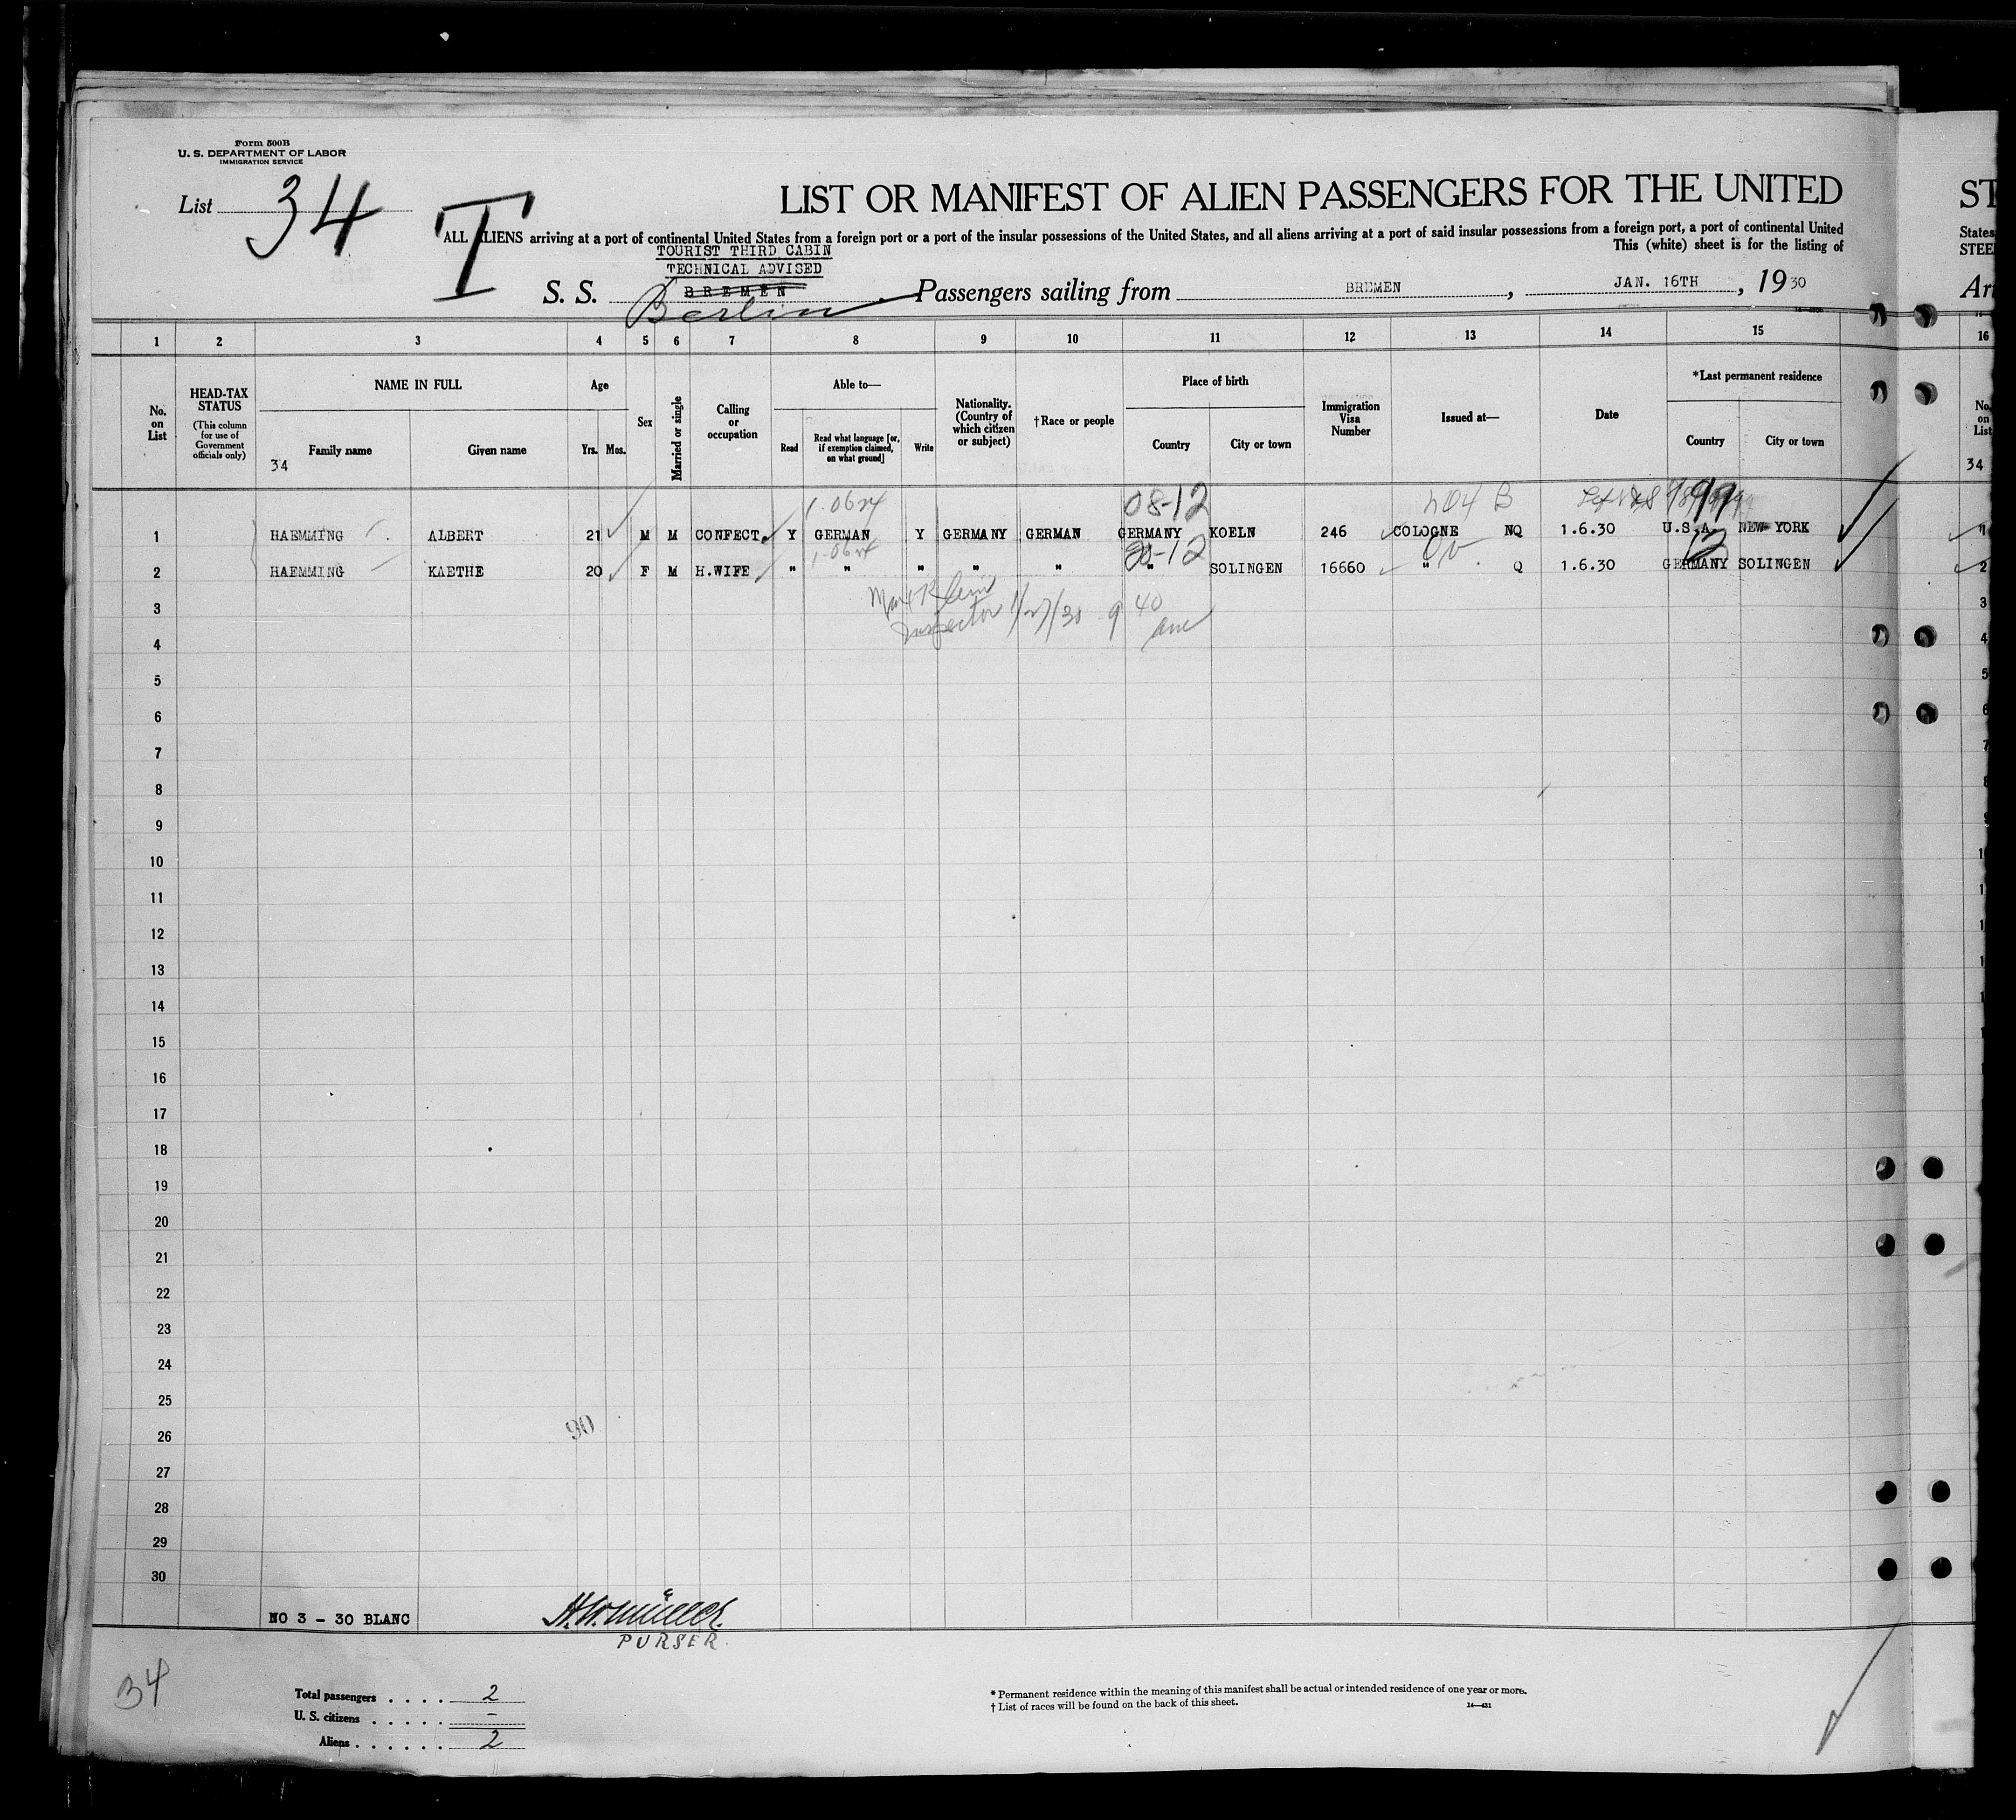 Form 500B
U. S. DEPARTMENT OF LABOR
IMMIGRATION SERVICE
List 34
T
LIST OR MANIFEST OF ALIEN PASSENGERS FOR THE UNITED
ST
ALL ALIENS arriving at a port of continental United States from a foreign port or a port of the insular possessions of the United States, and all aliens arriving at a port of said insular possessions from a foreign port, a port of continental United
States
This (white) sheet is for the listing of
STEE
TOURIST THIRD CABIN
TECHNICAL ADVISED
S. S. BREMEN Passengers sailing from BREMEN, JAN. 16TH, 1930
Berlin
1 2 3 4 5 6 7 8 9 10 11 12 13 14 15 16
No. on List
HEAD-TAX STATUS
(This column for use of Government officials only)
NAME IN FULL
Family name
Given name
34
Age
Yrs. Mos.
Sex
Married or single
Calling or occupation
Able to—
Read
Read what language [or, if exemption claimed, on what ground]
Write
Nationality. (Country of which citizen or subject)
† Race or people
Place of birth
Country
City or town
Immigration Visa Number
Issued at—
Date
*Last permanent residence
Country
City or town
No. on List
34
08-12
1 HAEMMING ALBERT 21 M M CONFECT. Y GERMAN Y GERMANY GERMAN GERMANY KOELN 246 COLOGNE NQ 1.6.30 U.S.A. NEW-YORK
2 HAEMMING KAETHE 20 F M H.WIFE " " " " " " SOLINGEN 16660 " Q 1.6.30 GERMANY SOLINGEN
Inspector 1/27/30 9 40
3
4
5
6
7
8
9
10
11
12
13
14
15
16
17
18
19
20
21
22
23
24
25
26
27
28
29
30
90
NO 3 - 30 BLANC
PURSER.
34
Total passengers . . . . 2
U. S. citizens . . . . . –
Aliens . . . . . . 2
* Permanent residence within the meaning of this manifest shall be actual or intended residence of one year or more.
† List of races will be found on the back of this sheet.